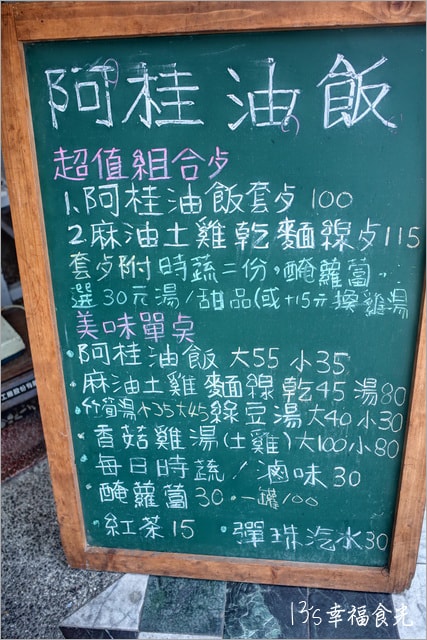 阿桂油飯
超值組合歺
1.阿桂油飯套歺 100
2.麻油土雞乾麵線歺115
套歺附時蔬二份,醃蘿蔔.
選30元湯/甜品(或+15元換雞湯
美味單点
·阿桂油飯 大55 小35
·麻油土雞麵線 乾45 湯80
竹筍湯小35大45 綠豆湯大40小30
·香菇雞湯(土雞)大100小80
·每日時蔬/滷味30
·醃蘿蔔30.一罐100
·紅茶15 ·彈珠汽水30
13's幸福食光